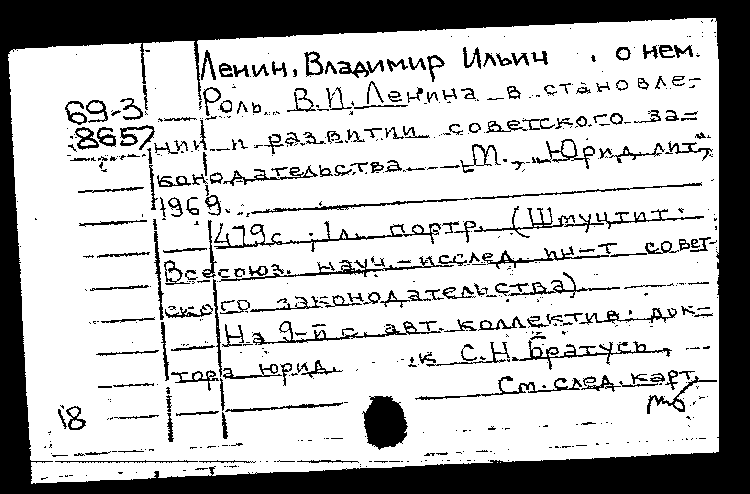 Ленин, Владимир Ильич , о нем.
69-3
8657
Роль В.И. Ленина в становле-
нии и развитии советского за-
конодательства. М., „Юрид. лит.",
1969.
479 с.; 1 л. портр. (Шт.уц.тит.:
Всесоюз. науч.-исслед. ин-т совет-
ского законодательства)
На 9-й с. авт. коллектив: док-
тора юрид. С.Н. Братусь,
См. след. карт.
18